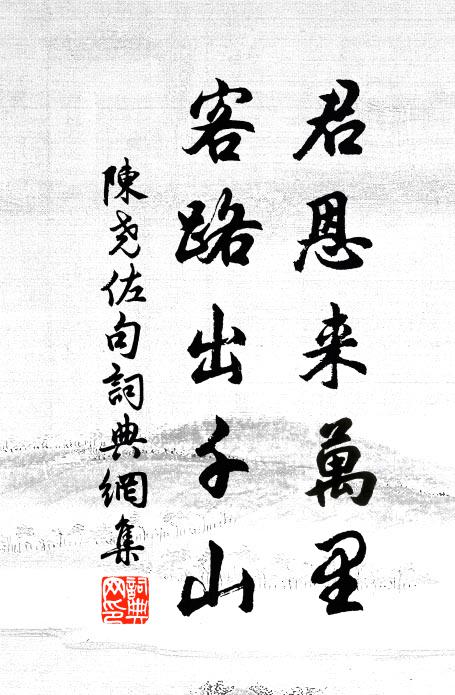 君恩来萬里
客路出千山
陳尧佐句詞典網集
詞典网印